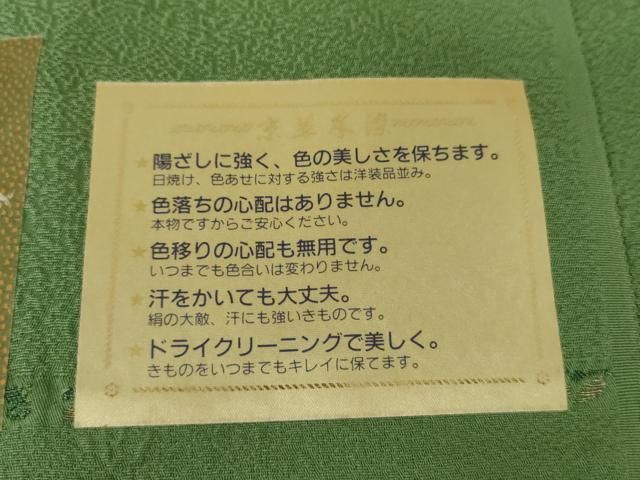 陽ざしに強く、色の美しさを保ちます。
日焼け、色あせに対する強さは洋装品並み。
色落ちの心配はありません。
本物ですからご安心ください。
色移りの心配も無用です。
いつまでも色合いは変わりません。
汗をかいても大丈夫。
絹の大敵、汗にも強いきものです。
ドライクリーニングで美しく。
きものをいつまでもキレイに保てます。